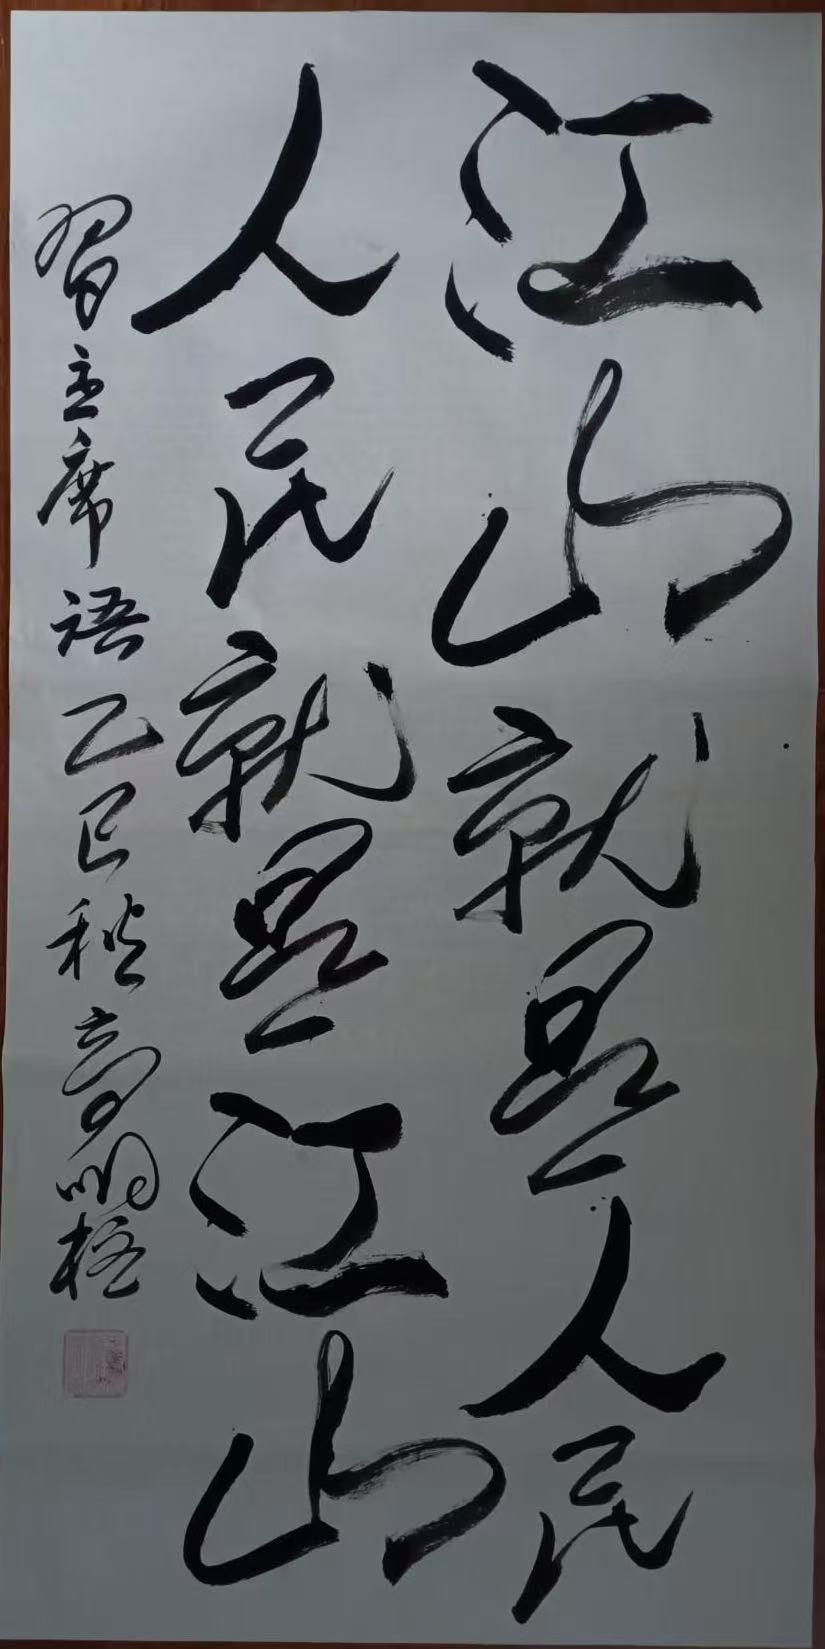 江山就是人民
人民就是江山
習主席語乙巳秋高明